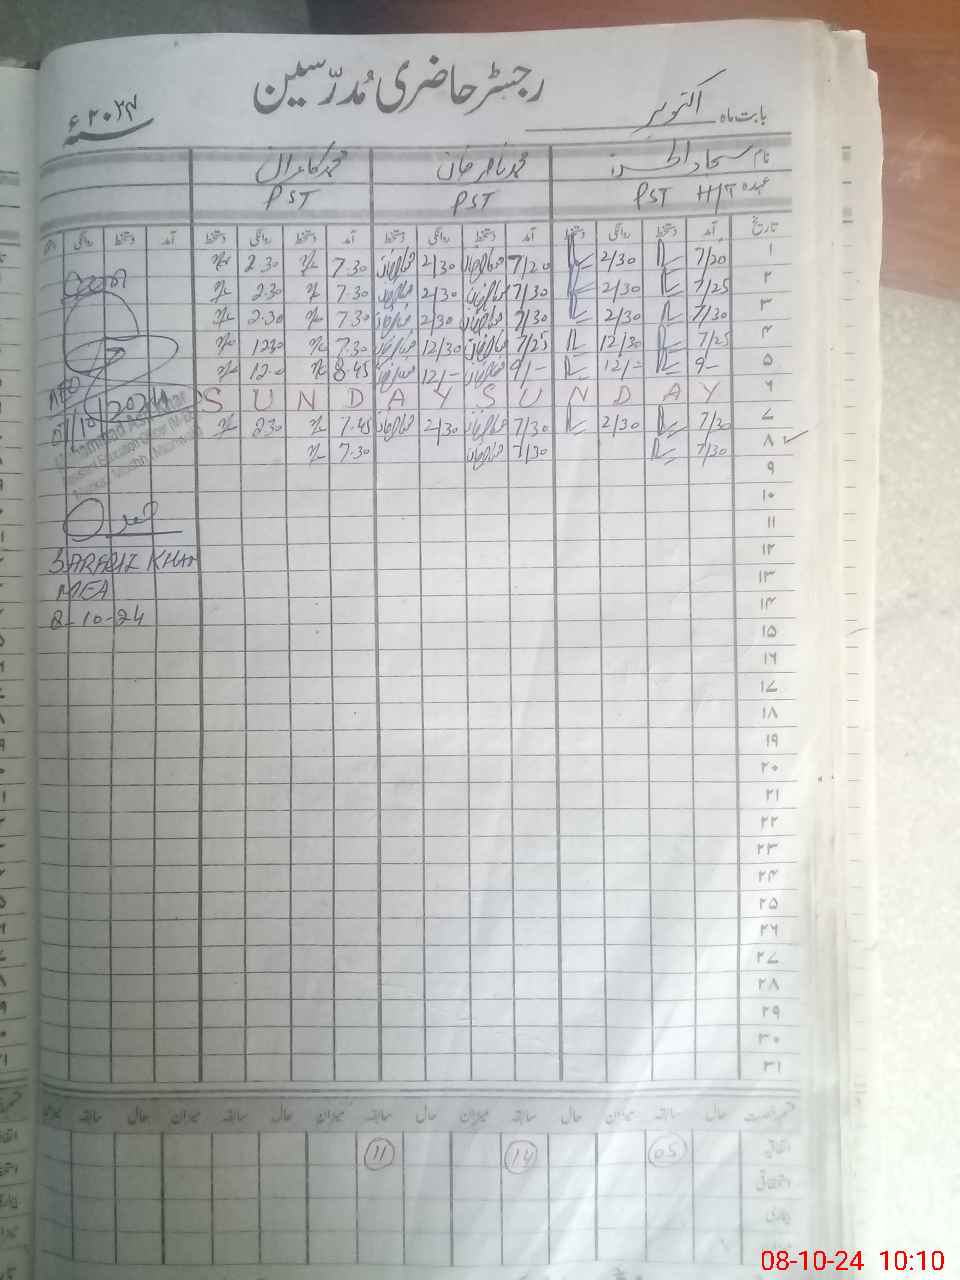 رجسٹر حاضری مُدرّسین
بابت ماہ اکتوبر ۲۰۲۴ء
نام محمد ناصر خان محمد کامران
عہدہ PST H/T PST PST
تاریخ آمد دستخط روانگی دستخط آمد دستخط روانگی دستخط آمد دستخط روانگی دستخط آمد دستخط روانگی دستخط
۱ 7/20 2/30 7/20 2/30 7.30 2.30
۲ 7/25 2/30 7/30 2/30 7.30 2.30
۳ 7/30 2/30 7/30 2/30 7.30 2.30
۴ 7/25 12/30 7/25 12/30 7.30 1230
۵ 9/- 12/- 9/- 12/- 8.45 12.0
۶ S U N D A Y S U N D A Y
۷ 7/30 2/30 7/30 2/30 7.45 230
۸ 7/30 7/30 7.30
۹
۱۰
۱۱
۱۲
۱۳
۱۴
۱۵
۱۶
۱۷
۱۸
۱۹
۲۰
۲۱
۲۲
۲۳
۲۴
۲۵
۲۶
۲۷
۲۸
۲۹
۳۰
۳۱
SARFRAZ KHAN
MEA
8-10-24
قسم رخصت حال سابقہ میزان حال سابقہ میزان حال سابقہ میزان حال سابقہ میزان
اتفاقی 05 14 11
استحقاقی
بیماری
08-10-24 10:10